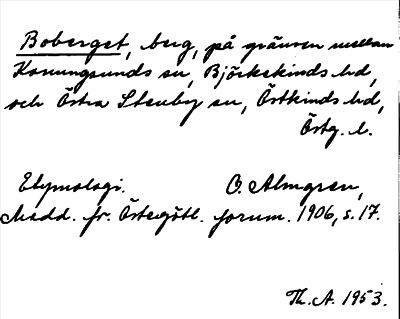 Boberget, berg, på gränsen mellan
Konungsunds sn, Björkekinds hd,
och Östra Stenby sn, Östkinds hd,
Östg. l.
Etymologi. O. Almgren,
Medd. fr. Östergötl. fornm. 1906, s. 17.
Th. A. 1953.